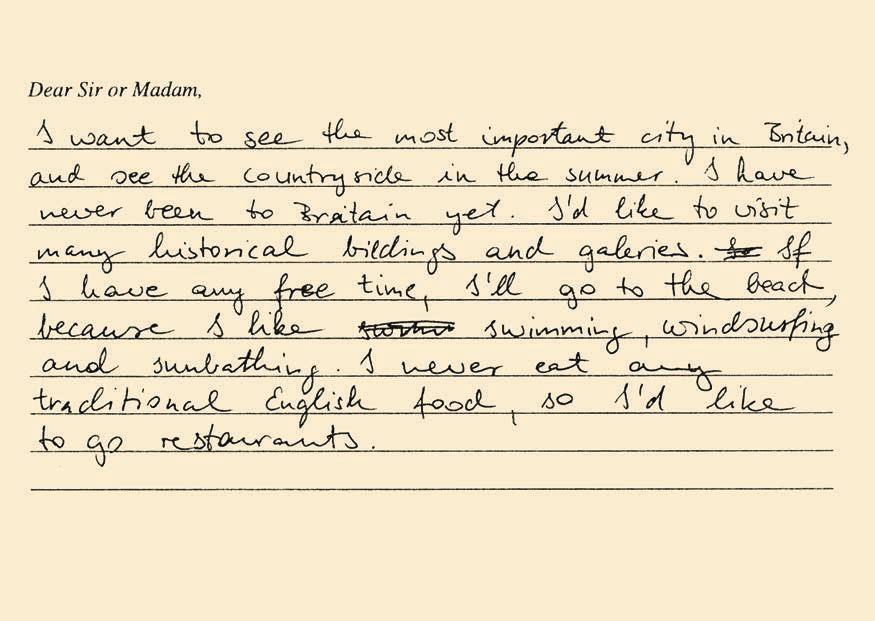 Dear Sir or Madam,
I want to see the most important city in Britain,
and see the countryside in the summer. I have
never been to Breitain yet. I'd like to visit
many historical bildings and galeries. If
I have any free time, I'll go to the beach,
because I like swimming, windsurfing
and sunbathing. I never eat any
traditional English food, so I'd like
to go restaurants.